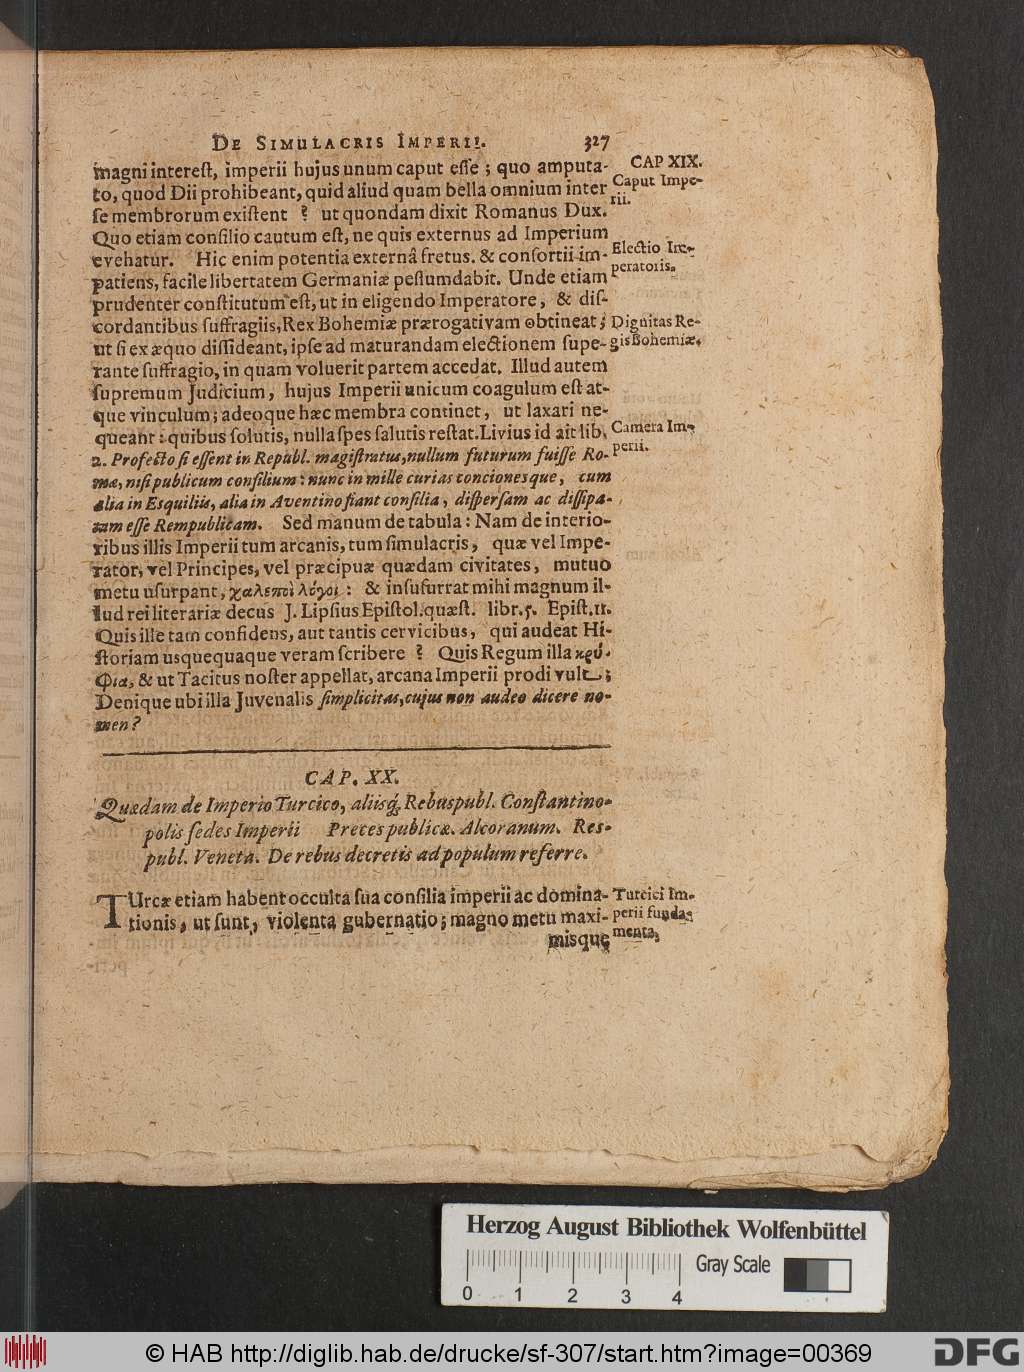 DE SIMULACRIS IMPERII. 327
magni interest, imperii hujus unum caput esse; quo amputa-
to, quod Dii prohibeant, quid aliud quam bella omnium inter
se membrorum existent? ut quondam dixit Romanus Dux.
Quo etiam consilio cautum est, ne quis externus ad Imperium
evehatur. Hic enim potentia externâ fretus. & consortii im-
patiens, facile libertatem Germaniæ pessumdabit. Unde etiam
prudenter constitutum est, ut in eligendo Imperatore, & dis-
cordantibus suffragiis, Rex Bohemiæ prærogativam obtineat;
ut si ex æquo dissideant, ipse ad maturandam electionem supe-
rante suffragio, in quam voluerit partem accedat. Illud autem
supremum Judicium, hujus Imperii unicum coagulum est at-
que vinculum; adeoque hæc membra continet, ut laxari ne-
queant: quibus solutis, nulla spes salutis restat. Livius id ait lib.
2. Profecto si essent in Republ. magistratus, nullum futurum fuisse Ro-
mæ, nisi publicum consilium: nunc in mille curias concionesque, cum
alia in Esquiliis, alia in Aventino fiant consilia, dispersam ac dissipa-
tam esse Rempublicam. Sed manum de tabula: Nam de interio-
ribus illis Imperii tum arcanis, tum simulacris, quæ vel Impe-
rator, vel Principes, vel præcipuæ quædam civitates, mutuo
metu usurpant, χαλεποὶ λόγοι: & insusurrat mihi magnum il-
lud rei literariæ decus J. Lipsius Epistol. quæst. libr. 5. Epist. 11.
Quis ille tam confidens, aut tantis cervicibus, qui audeat Hi-
storiam usquequaque veram scribere? Quis Regum illa κρύ-
φια, & ut Tacitus noster appellat, arcana Imperii prodi vult;
Denique ubi illa Juvenalis simplicitas, cujus non audeo dicere no-
men?
CAP XIX.
Caput Impe-
rii.
Electio Im-
peratoris.
Dignitas Re-
gis Bohemiæ.
Camera Im-
perii.
CAP. XX.
Quædam de Imperio Turcico, aliisq́; Rebuspubl. Constantino-
polis sedes Imperii Preces publicæ. Alcoranum. Res-
publ. Veneta. De rebus decretis ad populum referre.
TUrcæ etiam habent occulta sua consilia imperii ac domina-
tionis, ut sunt, violenta gubernatio; magno metu maxi-
misque
Turcici Im-
perii funda-
menta.
Herzog August Bibliothek Wolfenbüttel
Gray Scale
0 1 2 3 4
© HAB http://diglib.hab.de/drucke/sf-307/start.htm?image=00369
DFG